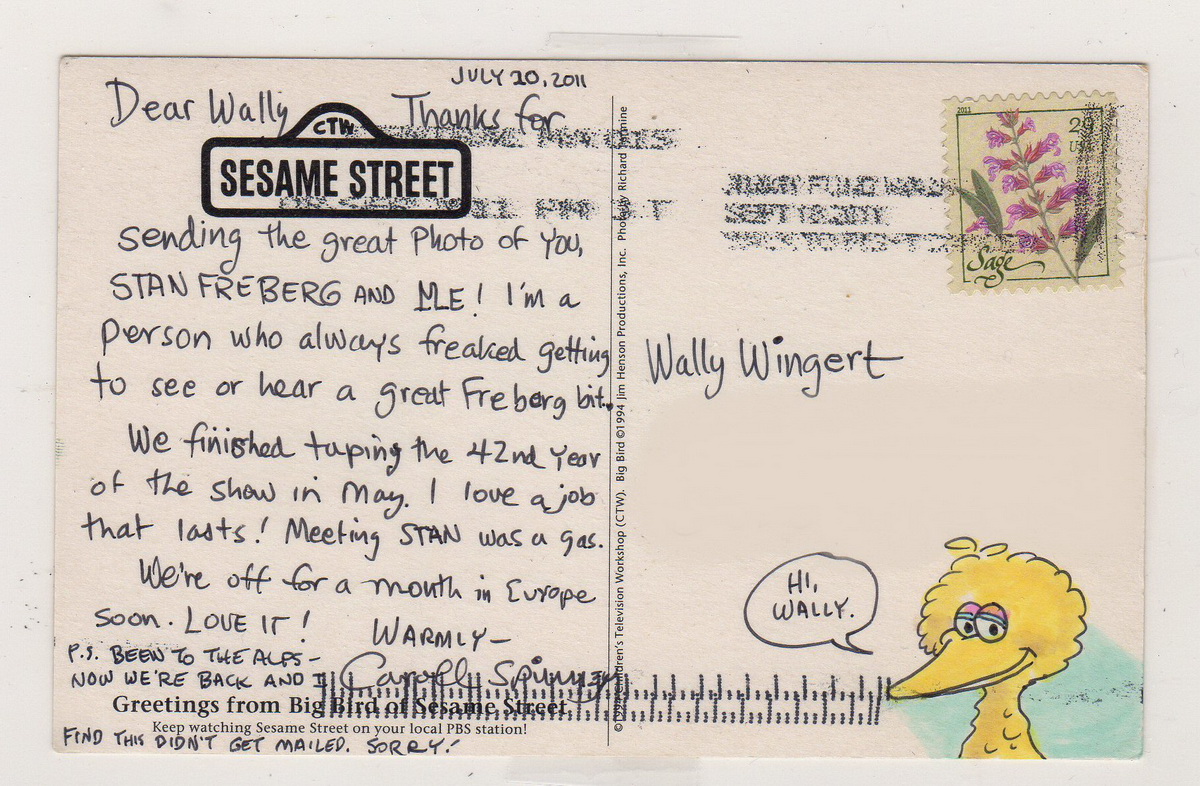 JULY 20, 2011
Dear Wally Thanks for
CTW
SESAME STREET
sending the great Photo of You,
STAN FREBERG AND ME! I'm a
person who always freaked getting
to see or hear a great Freberg bit.
We finished taping the 42nd Year
of the show in May. I love a job
that lasts! Meeting STAN was a gas.
We're off for a month in Europe
soon. LOVE IT!
WARMLY—
Caroll Spinney
P.S. BEEN TO THE ALPS—
NOW WE'RE BACK AND I
Greetings from Big Bird of Sesame Street
Keep watching Sesame Street on your local PBS station!
FIND THIS DIDN'T GET MAILED. SORRY!
Children's Television Workshop (CTW). Big Bird ©1994 Jim Henson Productions, Inc. Photo by Richard Termine
JIMMY FUND WALK
SEPT 18, 2011
2011
USA
Sage
Wally Wingert
HI,
WALLY.